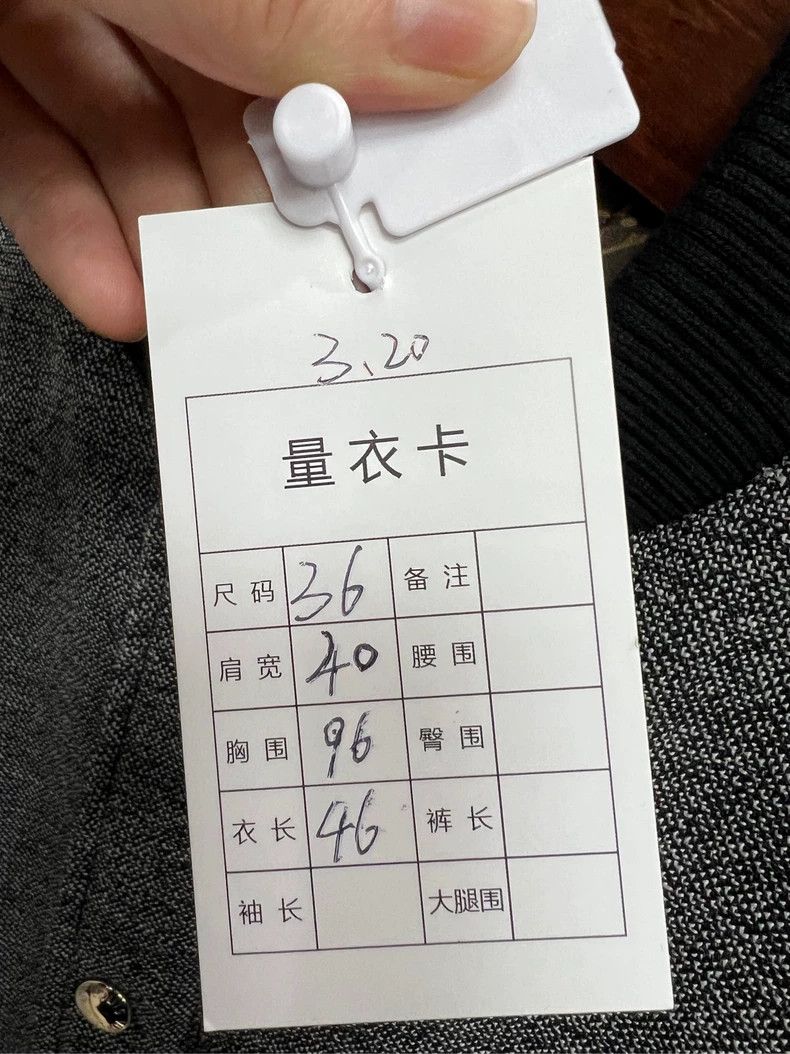 3.20
量衣卡
尺码 36 备注
肩宽 40 腰围
胸围 96 臀围
衣长 46 裤长
袖长 大腿围